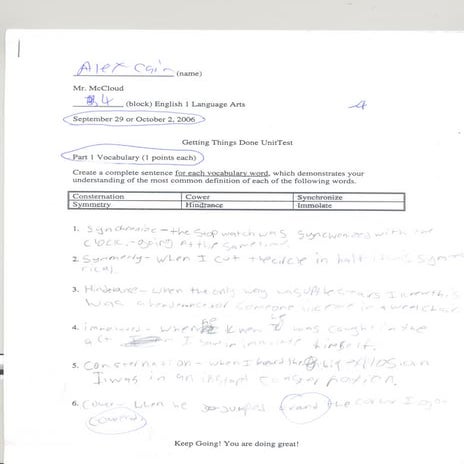 Alex Cain (name)
Mr. McCloud
4 (block) English 1 Language Arts
September 29 or October 2, 2006
Getting Things Done UnitTest
Part 1 Vocabulary (1 points each)
Create a complete sentence for each vocabulary word, which demonstrates your
understanding of the most common definition of each of the following words.
Consternation Cower Synchronize
Symmetry Hindrance Immolate
1. Synchronize - the stop watch was synchronized with the
clock, going at the same time.
2. Symmetry - when I cut the circle in half it was symmet
rical.
3. Hindrance - when the only way was I
was a hindrance for someone in a wheel chair.
4. - when he knew he was caught in the
act I saw himself.
5. Consternation - when I heard the big
I was in an
6. Cower - when he jumped around the corner I
cowered.
Keep Going! You are doing great!